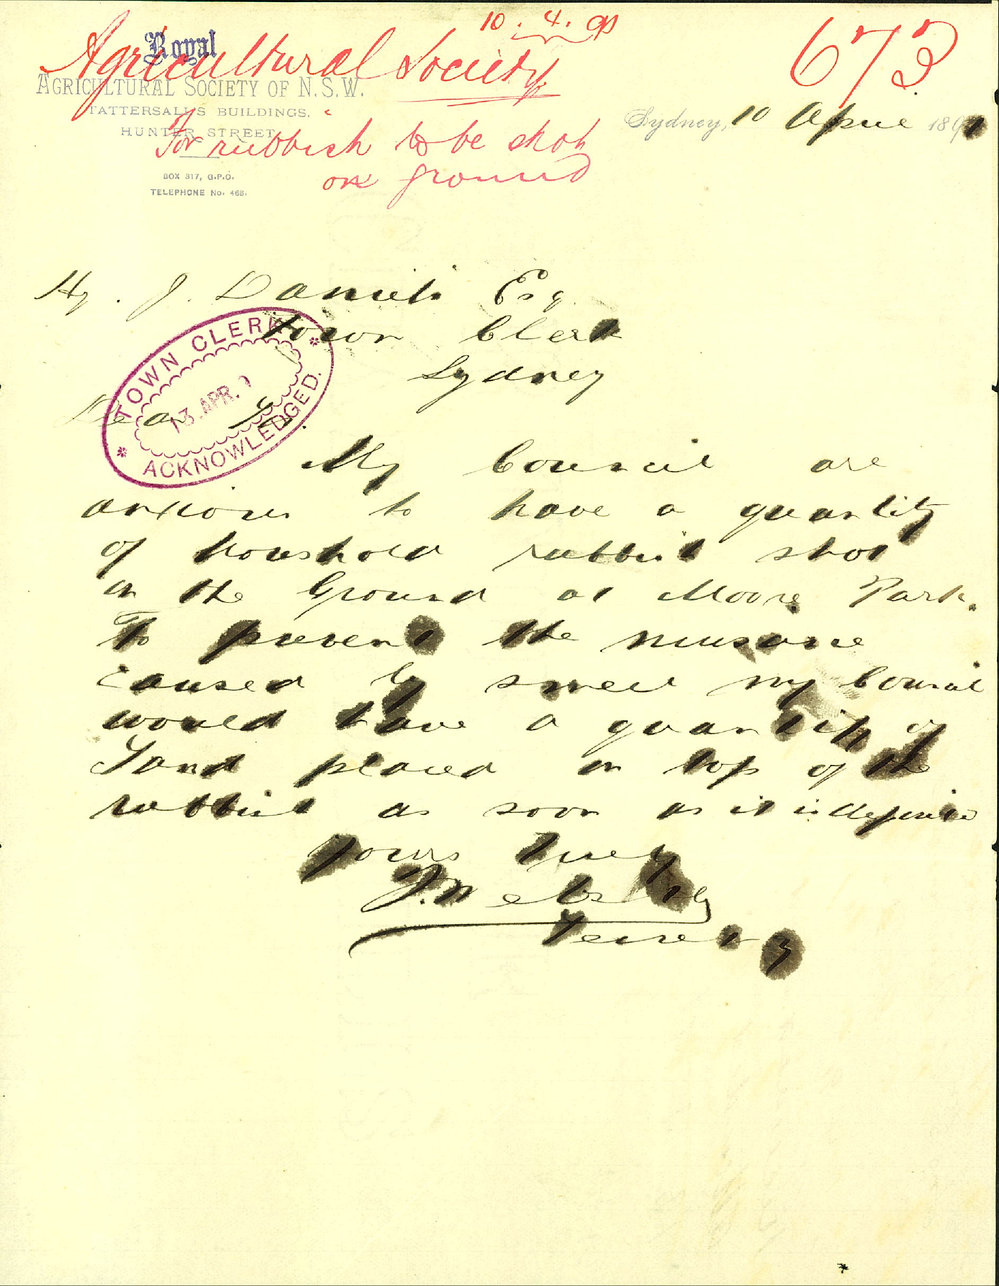 10. 4. 91
673
Royal
Agricultural Society
AGRICULTURAL SOCIETY OF N.S.W.
TATTERSALL'S BUILDINGS,
HUNTER STREET,
For rubbish to be shot
on ground
BOX 317, G.P.O.
TELEPHONE No. 468.
Sydney, 10 April 1891
Hy. J. Daniels Esq
Town Clerk
Sydney
TOWN CLERK
13 APR. 9
ACKNOWLEDGED.
Dear Sir.
My Council are
anxious to have a quantity
of household rubbish shot
on the Ground at Moore Park.
To prevent the nuisance
caused by smell my Council
would have a quantity of
Sand placed on top of the
rubbish as soon as it is deposited
Yours truly
Secretary